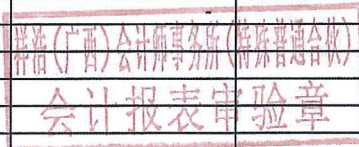 祥浩(广西)会计师事务所(特殊普通合伙)
会计报表审验章